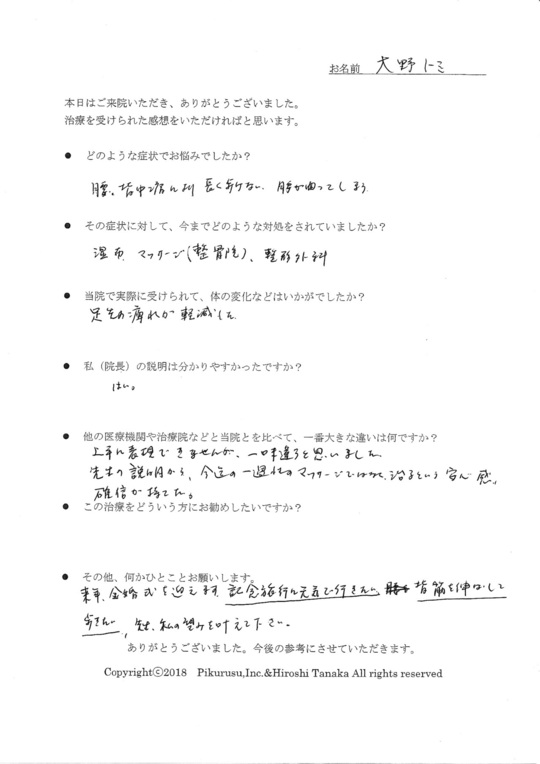 お名前 大野トミ
本日はご来院いただき、ありがとうございました。
治療を受けられた感想をいただければと思います。
● どのような症状でお悩みでしたか？
腰、背中痛により長く歩けない 腰が曲ってしまう
● その症状に対して、今までどのような対処をされていましたか？
湿布、マッサージ(整骨院)、整形外科
● 当院で実際に受けられて、体の変化などはいかがでしたか？
足先の痺れが軽減した
● 私（院長）の説明は分かりやすかったですか？
はい。
● 他の医療機関や治療院などと当院とを比べて、一番大きな違いは何ですか？
上手に表現できませんが、一味違うと思いました
先生の説明から、今迄の一過性のマッサージではなく、治るという安心感、
確信が持てた。
● この治療をどういう方にお勧めしたいですか？
● その他、何かひとことお願いします。
来年、金婚式を迎えます 記念旅行に元気で行きたい 背筋を伸ばして
歩きたい、私の望みを叶えて下さい。
ありがとうございました。今後の参考にさせていただきます。
Copyrightⓒ2018 Pikurusu,Inc.&Hiroshi Tanaka All rights reserved